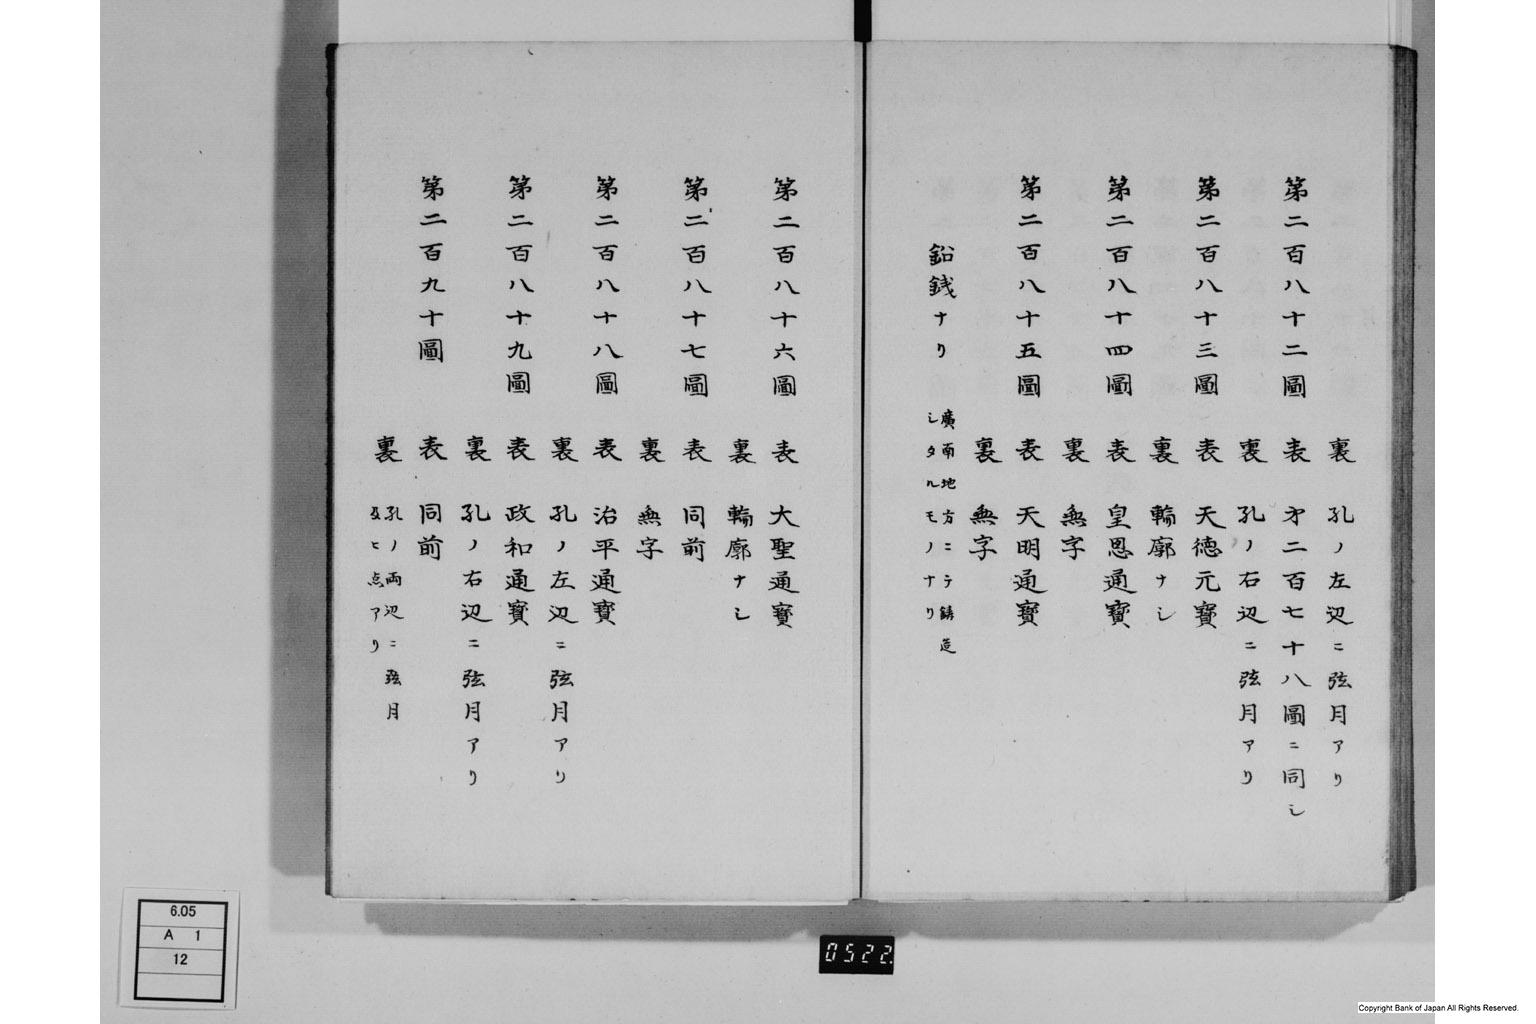 裏 孔ノ左辺ニ弦月アリ
第二百八十二圖 表 才二百七十八圖ニ同シ
裏 孔ノ右辺ニ弦月アリ
第二百八十三圖 表 天徳元寳
裏 輪廓ナシ
第二百八十四圖 表 皇恩通寳
裏 無字
第二百八十五圖 表 天明通寳
裏 無字
鉛銭ナリ 廣南地方ニテ鋳造
シタルモノナリ
第二百八十六圖 表 大聖通寳
裏 輪廓ナシ
第二百八十七圖 表 同前
裏 無字
第二百八十八圖 表 治平通寳
裏 孔ノ左辺ニ弦月アリ
第二百八十九圖 表 政和通寳
裏 孔ノ右辺ニ弦月アリ
第二百九十圖 表 同前
裏 孔ノ両辺ニ弦月
及ヒ点アリ
6.05
A 1
12
0522
Copyright Bank of Japan All Rights Reserved.